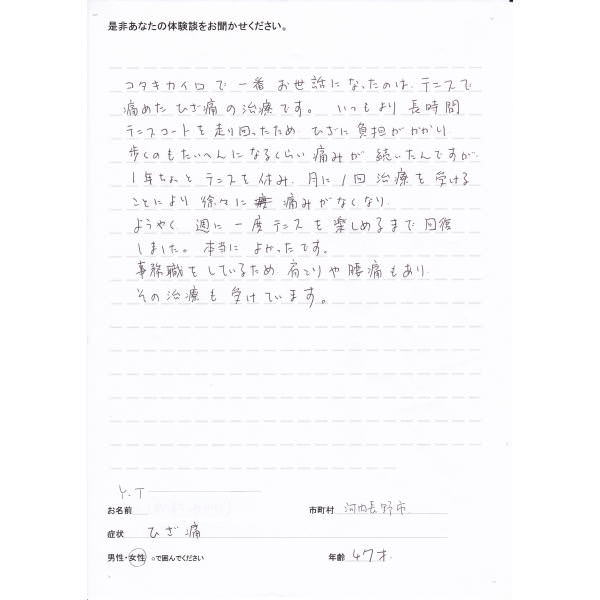 是非あなたの体験談をお聞かせください。
コタキカイロで一番お世話になったのは、テニスで
痛めたひざ痛の治療です。いつもより長時間
テニスコートを走り回ったためひざに負担がかかり
歩くのもたいへんになるくらい痛みが続いたんですが、
1年ちょっとテニスを休み、月に1回治療を受ける
ことにより徐々に痛みがなくなり、
ようやく週に一度テニスを楽しめるまで回復
しました。本当によかったです。
事務職をしているため肩こりや腰痛もあり
その治療も受けています。
Y.T
お名前
市町村 河内長野市
症状 ひざ痛
男性・女性 ○で囲んでください
年齢 47才